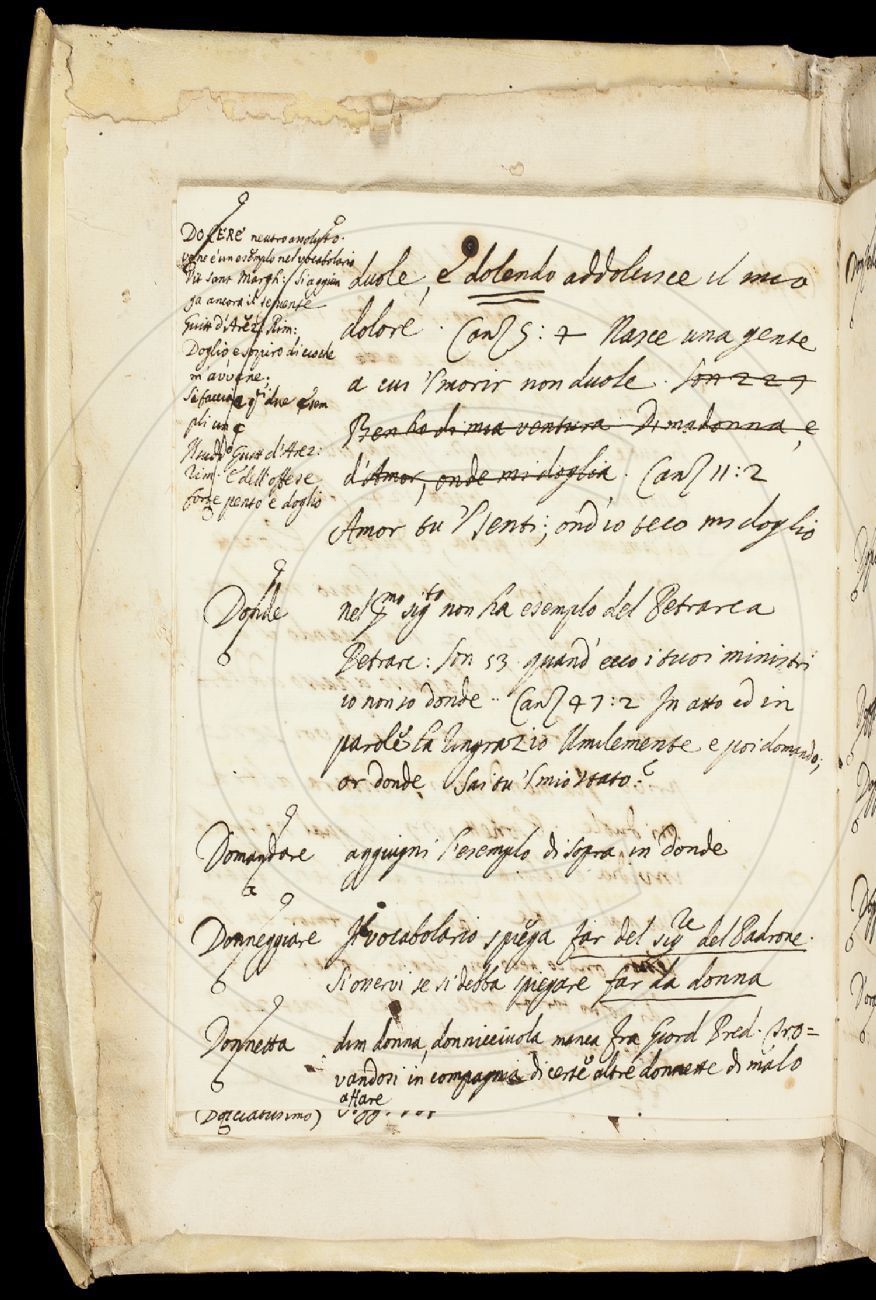 DOLERE neutro anolutto.
vene è uno esemplo nel vocabolario
Vit sant Margh: / Si aggien
ga ancora il seguente
Guitt d'Arez Rim:
Doglio, e sospiro di ciò che
m'avvene;
Si faccia di qti due esem
pli un
Guitt d'Arez:
Rim: E dell'offese
forte pento e doglio
duole, e dolendo addolcisce il mio
dolore. Canz 5: 4 Nasce una gente
a cui 'l morir non duole. Son 227
Ben ho di mia ventura Di madonna, e
d'Amor, onde mi doglia. Canz 11: 2
Amor tu 'l senti, ond'io teco mi doglio
Donde nel pmo sigto non ha esemplo del Petrarca
Petrarc: Son 53 quand' ecco i tuoi ministri
io non so donde.. Canz 47: 2 In atto ed in
parole la ringrazio Umilemente e poi domando;
or donde Sai tu 'l mio stato?
Domandare aggiugni l'esemplo di sopra in donde
Donneggiare Il vocabolario spiega far del sigre del Padrone.
Si osservi se si debba spiegare far da donna
Donnetta dim donna, donnicciuola manca fra Giord Pred. Tro=
vandosi in compagnia di certe altre donnette di malo
affare
(Dorciatissimo)